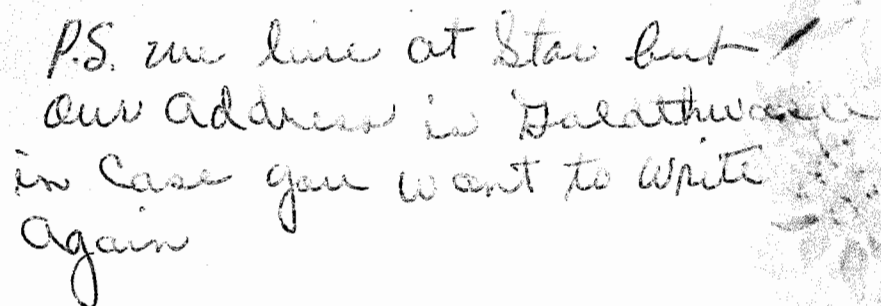 P.S. we live at Star but
our address is Goldthwaite
in case you want to write
again